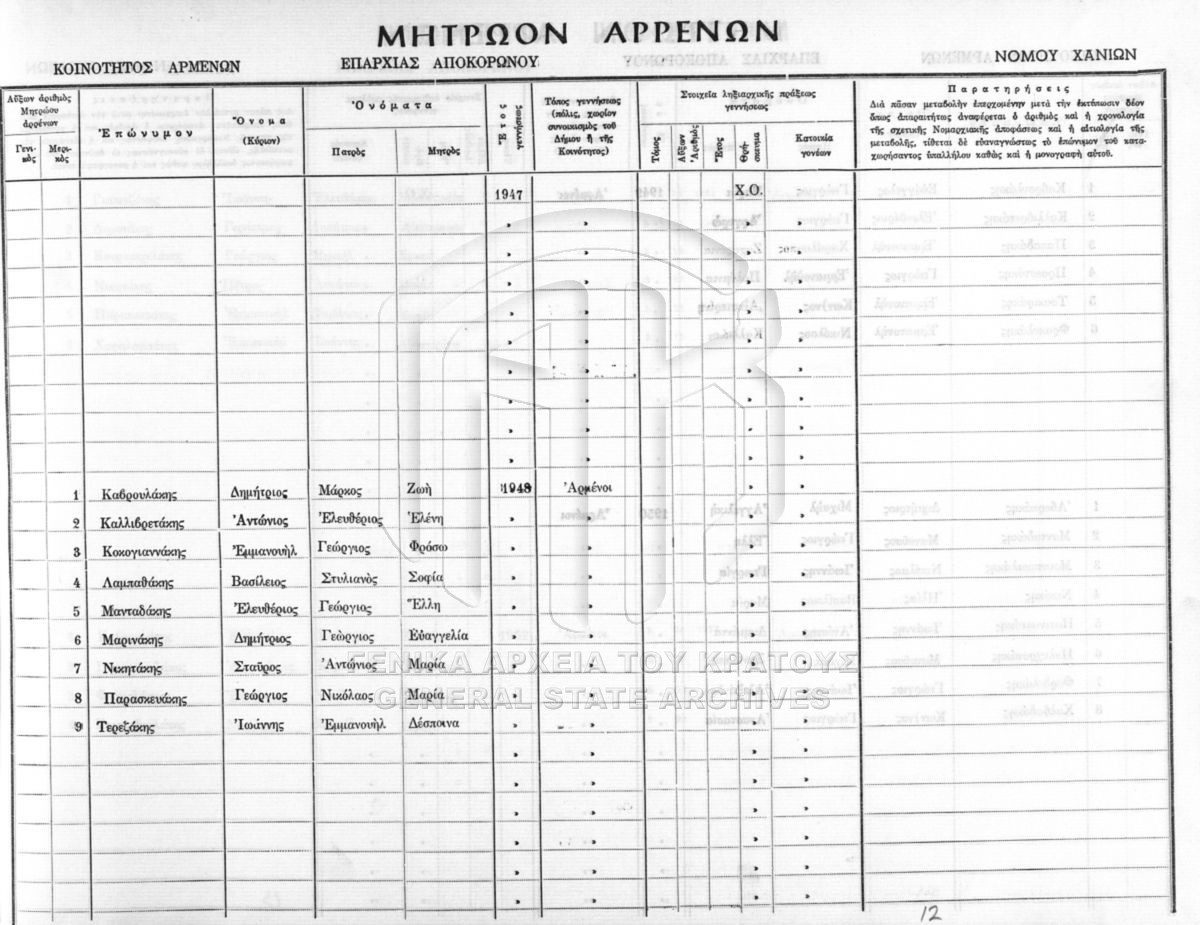 ΜΗΤΡΩΟΝ ΑΡΡΕΝΩΝ
ΚΟΙΝΟΤΗΤΟΣ ΑΡΜΕΝΩΝ ΕΠΑΡΧΙΑΣ ΑΠΟΚΟΡΩΝΟΥ ΝΟΜΟΥ ΧΑΝΙΩΝ
Αὔξων ἀριθμὸς Μητρώου ἀρρένων
Γενικὸς Μερικὸς
Ἐπώνυμον
Ὄνομα (Κύριον)
Ὀνόματα
Πατρὸς Μητρὸς
Ἔτος γεννήσεως
Τόπος γεννήσεως (πόλις, χωρίον συνοικισμὸς τοῦ Δήμου ἢ τῆς Κοινότητος)
Στοιχεῖα ληξιαρχικῆς πράξεως γεννήσεως
Τόμος Αὔξων Ἀριθμὸς Ἔτος Θρήσκευμα Κατοικία γονέων
Παρατηρήσεις
Διὰ πᾶσαν μεταβολὴν ἐπερχομένην μετὰ τὴν ἐκτύπωσιν δέον
ὅπως ἀπαραιτήτως ἀναφέρεται ὁ ἀριθμὸς καὶ ἡ χρονολογία
τῆς σχετικῆς Νομαρχιακῆς ἀποφάσεως καὶ ἡ αἰτιολογία τῆς
μεταβολῆς, τίθεται δὲ εὐαναγνώστως τὸ ἐπώνυμον τοῦ κατα-
χωρήσαντος ὑπαλλήλου καθὼς καὶ ἡ μονογραφὴ αὐτοῦ.
1947 Χ.Ο.
1 Καβρουλάκης Δημήτριος Μάρκος Ζωὴ 1948 Ἀρμένοι
2 Καλλιβρετάκης Ἀντώνιος Ἐλευθέριος Ἑλένη
3 Κοκογιαννάκης Ἐμμανουὴλ Γεώργιος Φρόσω
4 Λαμπαθάκης Βασίλειος Στυλιανὸς Σοφία
5 Μανταδάκης Ἐλευθέριος Γεώργιος Ἕλλη
6 Μαρινάκης Δημήτριος Γεὼργιος Εὐαγγελία
7 Νικητάκης Σταῦρος Ἀντώνιος Μαρία
8 Παρασκευάκης Γεώργιος Νικόλαος Μαρία
9 Τερεζάκης Ἰωάννης Ἐμμανουὴλ Δέσποινα
ΓΕΝΙΚΑ ΑΡΧΕΙΑ ΤΟΥ ΚΡΑΤΟΥΣ
GENERAL STATE ARCHIVES
12